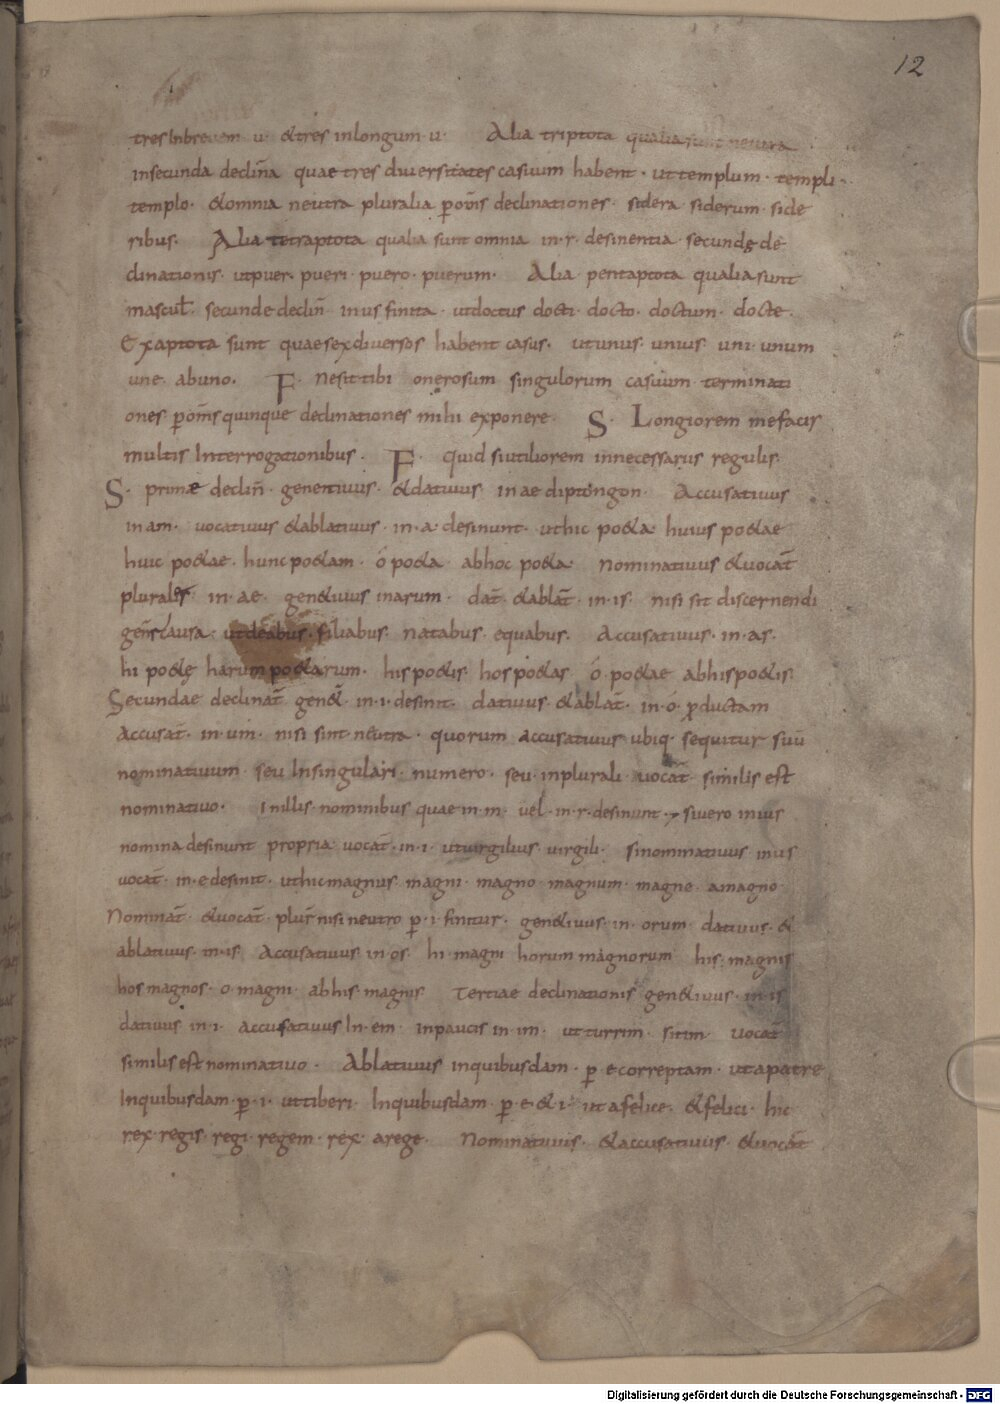 12
tres In breuem · u · & tres in longum · u · Alia triptota qualia sunt neutra
in secunda declin̄a quae tres diuersitates casuum habent · ut templum · templi ·
templo · & omnia neutra pluralia p̄ om̄s declinationes · sidera siderum side
ribus · Alia tetraptota qualia sunt omnia in · r · desinentia · secundę de
clinationis · ut puer · pueri · puero · puerum · Alia pentaptota qualia sunt
mascul̄ · secunde declin̄ · in us finita · ut doctus docti · docto · doctum · docte ·
Exaptota sunt quae sex diuersos habent casus · ut unus · unius · uni · unum
une · ab uno · F · Ne sit tibi onerosum singulorum casuum terminati
ones p̄ om̄s quinque declinationes mihi exponere · S · Longiorem me facis
multis Interrogationibus · F · quid si utiliorem in necessariis regulis ·
S · primæ declin̄ · genetiuus · & datiuus · in ae diptongon · Accusatiuus
in am · uocatiuus & ablatiuus · in · a · desinunt · ut hic po&a · huius po&ae
huic po&ae · hunc po&am · ó po&a · ab hoc po&a · Nominatiuus & uocat̄
plurales · in · ae · gen&iuus in arum · dat̄ · & ablat̄ · in · is · nisi sit discernendi
gen̄s causa · ut deabus · filiabus · natabus · equabus · Accusatiuus · in · as ·
hi po&ę harum po&arum · his po&is · hos po&as · ó · po&ae ab his po&is ·
Secundae declinat̄ gen&̄ · in · i · desinit · datiuus · & ablat̄ · in · ó · productam
Accusat̄ · in · um · nisi sint neutra · quorum accusatiuus ubiq · sequitur suū
nominatiuum · seu In singulari · numero · seu · in plurali · uocat̄ similis est
nominatiuo · In illis · nominibus quae in · m · uel · in · r · desinunt · si uero in ius
nomina desinunt propria uocat̄ · in · i · ut uirgilius uirgili · si nominatiuus in us
uocat̄ · in · e desinit · ut hic magnus magni · magno magnum · magne · a magno ·
Nominat̄ · & uocat̄ · plur̄ nisi neutro p̄ · i · finitur · gen&iuus · in · orum · datiuus · &
ablatiuus · in · is · Accusatiuus · in · os · hi · magni horum magnorum his · magnis
hos magnos · o · magni · ab his · magnis Tertiae declinationis gen&iuus · in · is
datiuus in · i · accusatiuus In · em · in paucis in · im · ut turrim · sitim · uocat̄
similis est nominatiuo · Ablatiuus in quibusdam · p̄ · e correptam · ut a patre
In quibusdam · p̄ · i · ut tiberi · In quibusdam · p̄ · e · & · i · ut a felice · & felici · hic
rex · regis · regi · regem · rex · a rege · Nominatiuus · & accusatiuus · & uocat̄
Digitalisierung gefördert durch die Deutsche Forschungsgemeinschaft - DFG